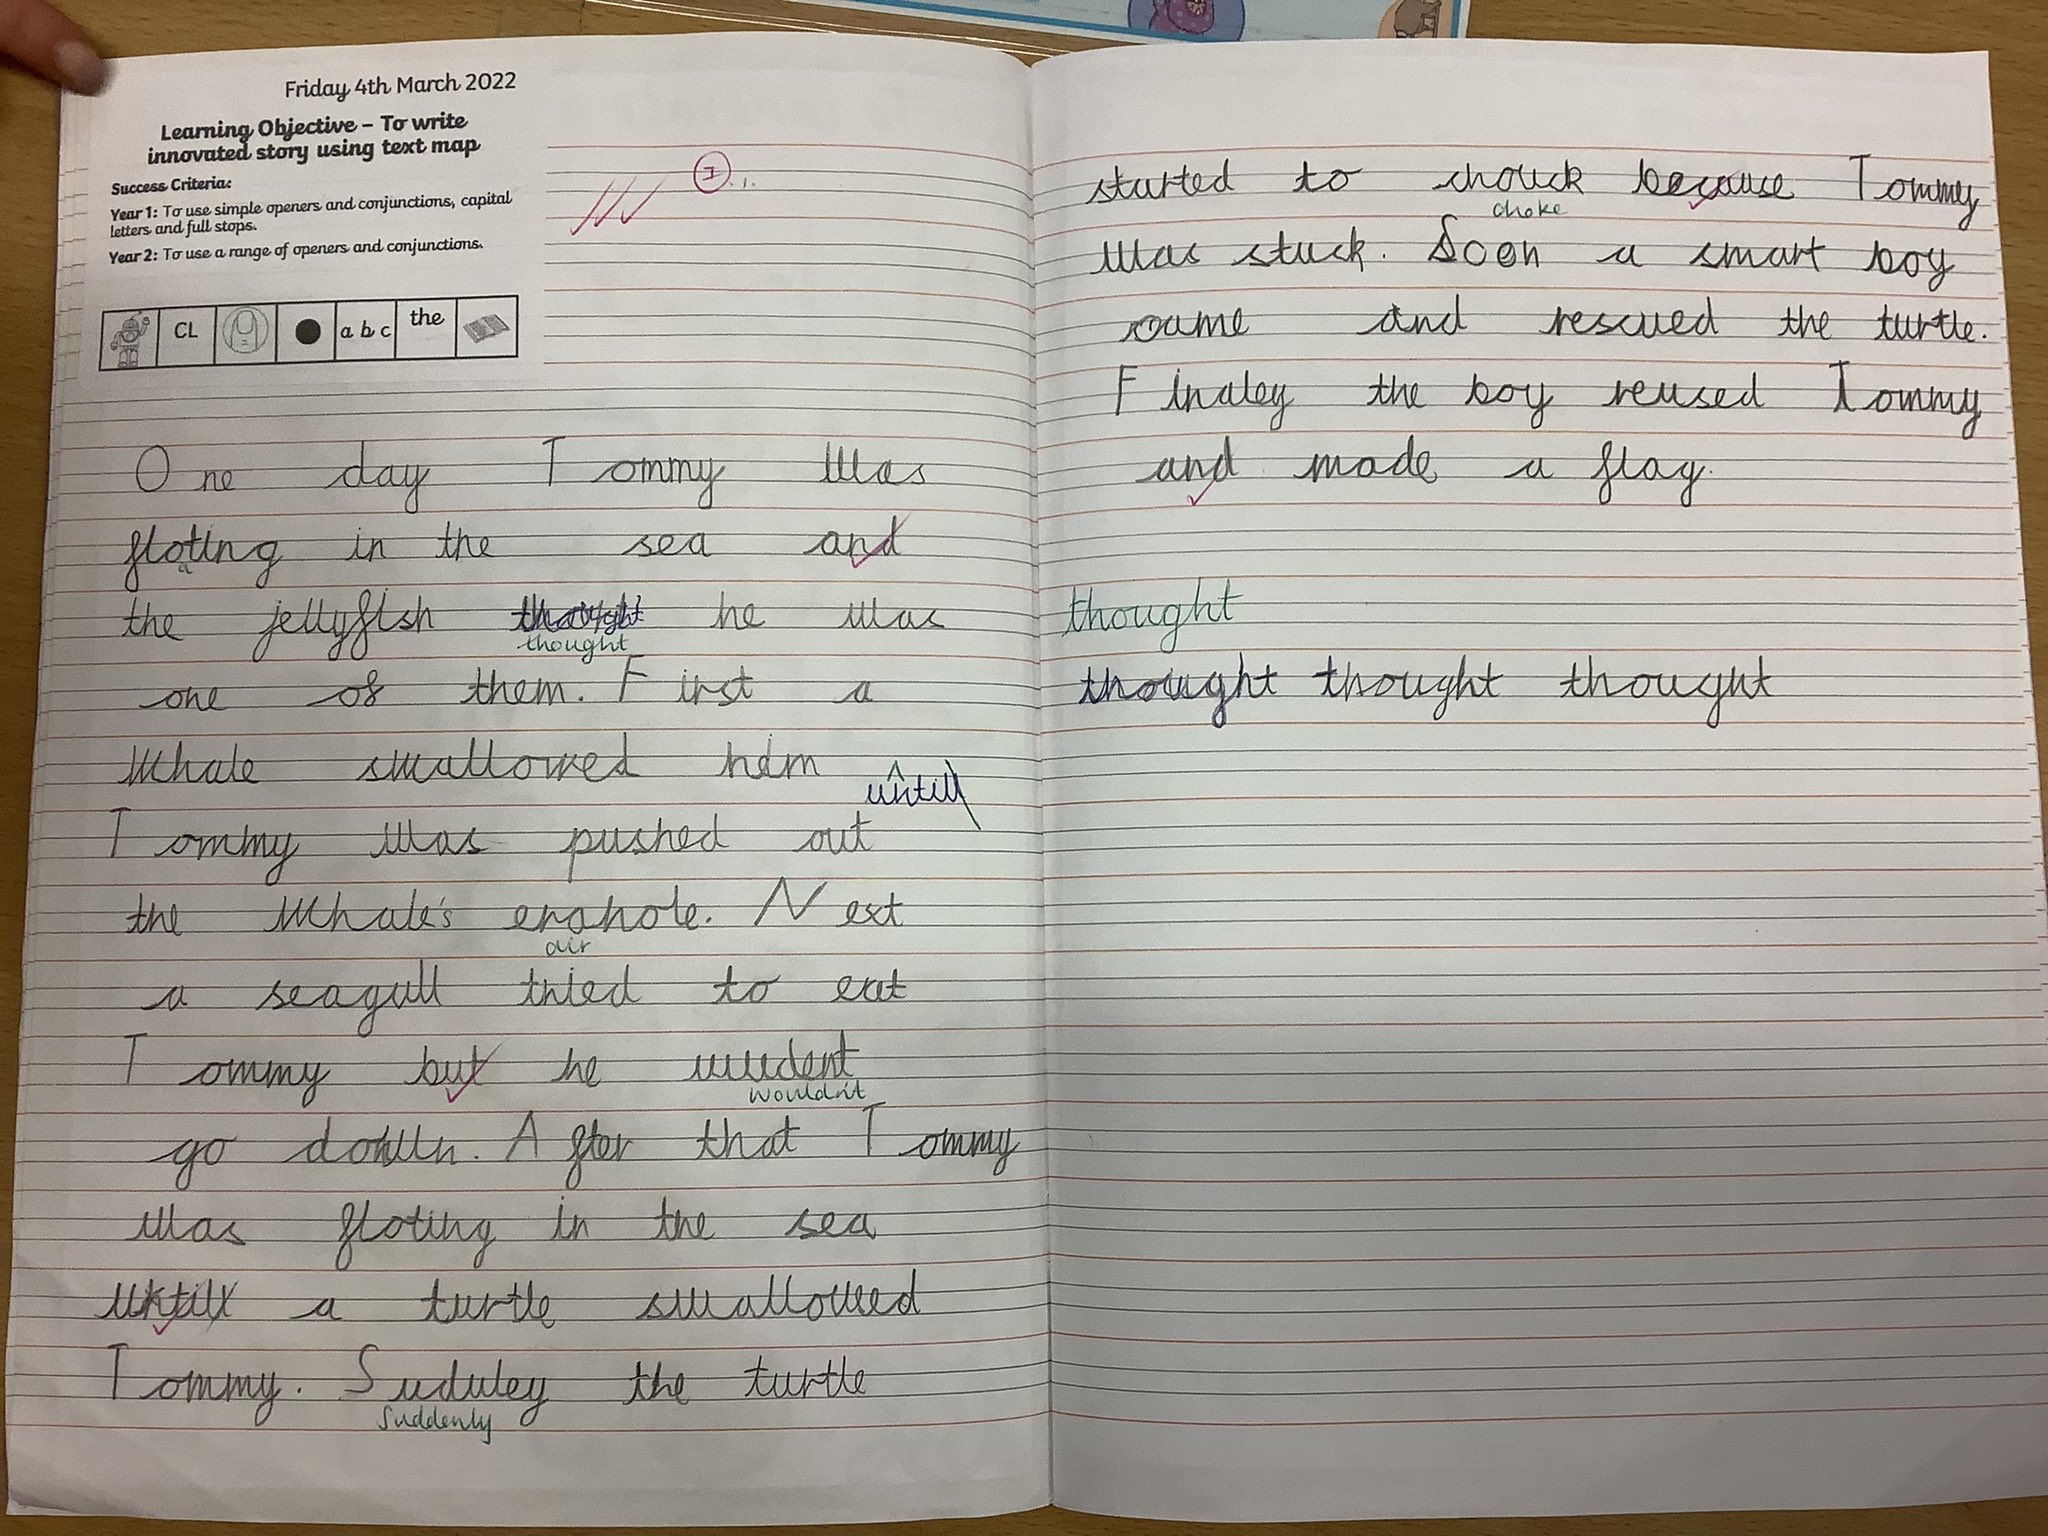 Friday 4th March 2022
Learning Objective – To write
innovated story using text map
Success Criteria:
Year 1: To use simple openers and conjunctions, capital
letters and full stops.
Year 2: To use a range of openers and conjunctions.
CL
a b c
the
I
One day Tommy was
floting in the sea and
a
the jellyfish he was
thought
one of them. First a
whale swallowed him
untill
Tommy was pushed out
the whale's erahole. Next
air
a seagull tried to eat
Tommy but he wudent
wouldn't
go down. After that Tommy
was floting in the sea
untill a turtle swallowed
Tommy. Suduley the turtle
Suddenly
started to chouck because Tommy
choke
was stuck. Soon a smart boy
came and rescued the turtle.
Finaley the boy reused Tommy
and made a flag.
thought
thought thought thought